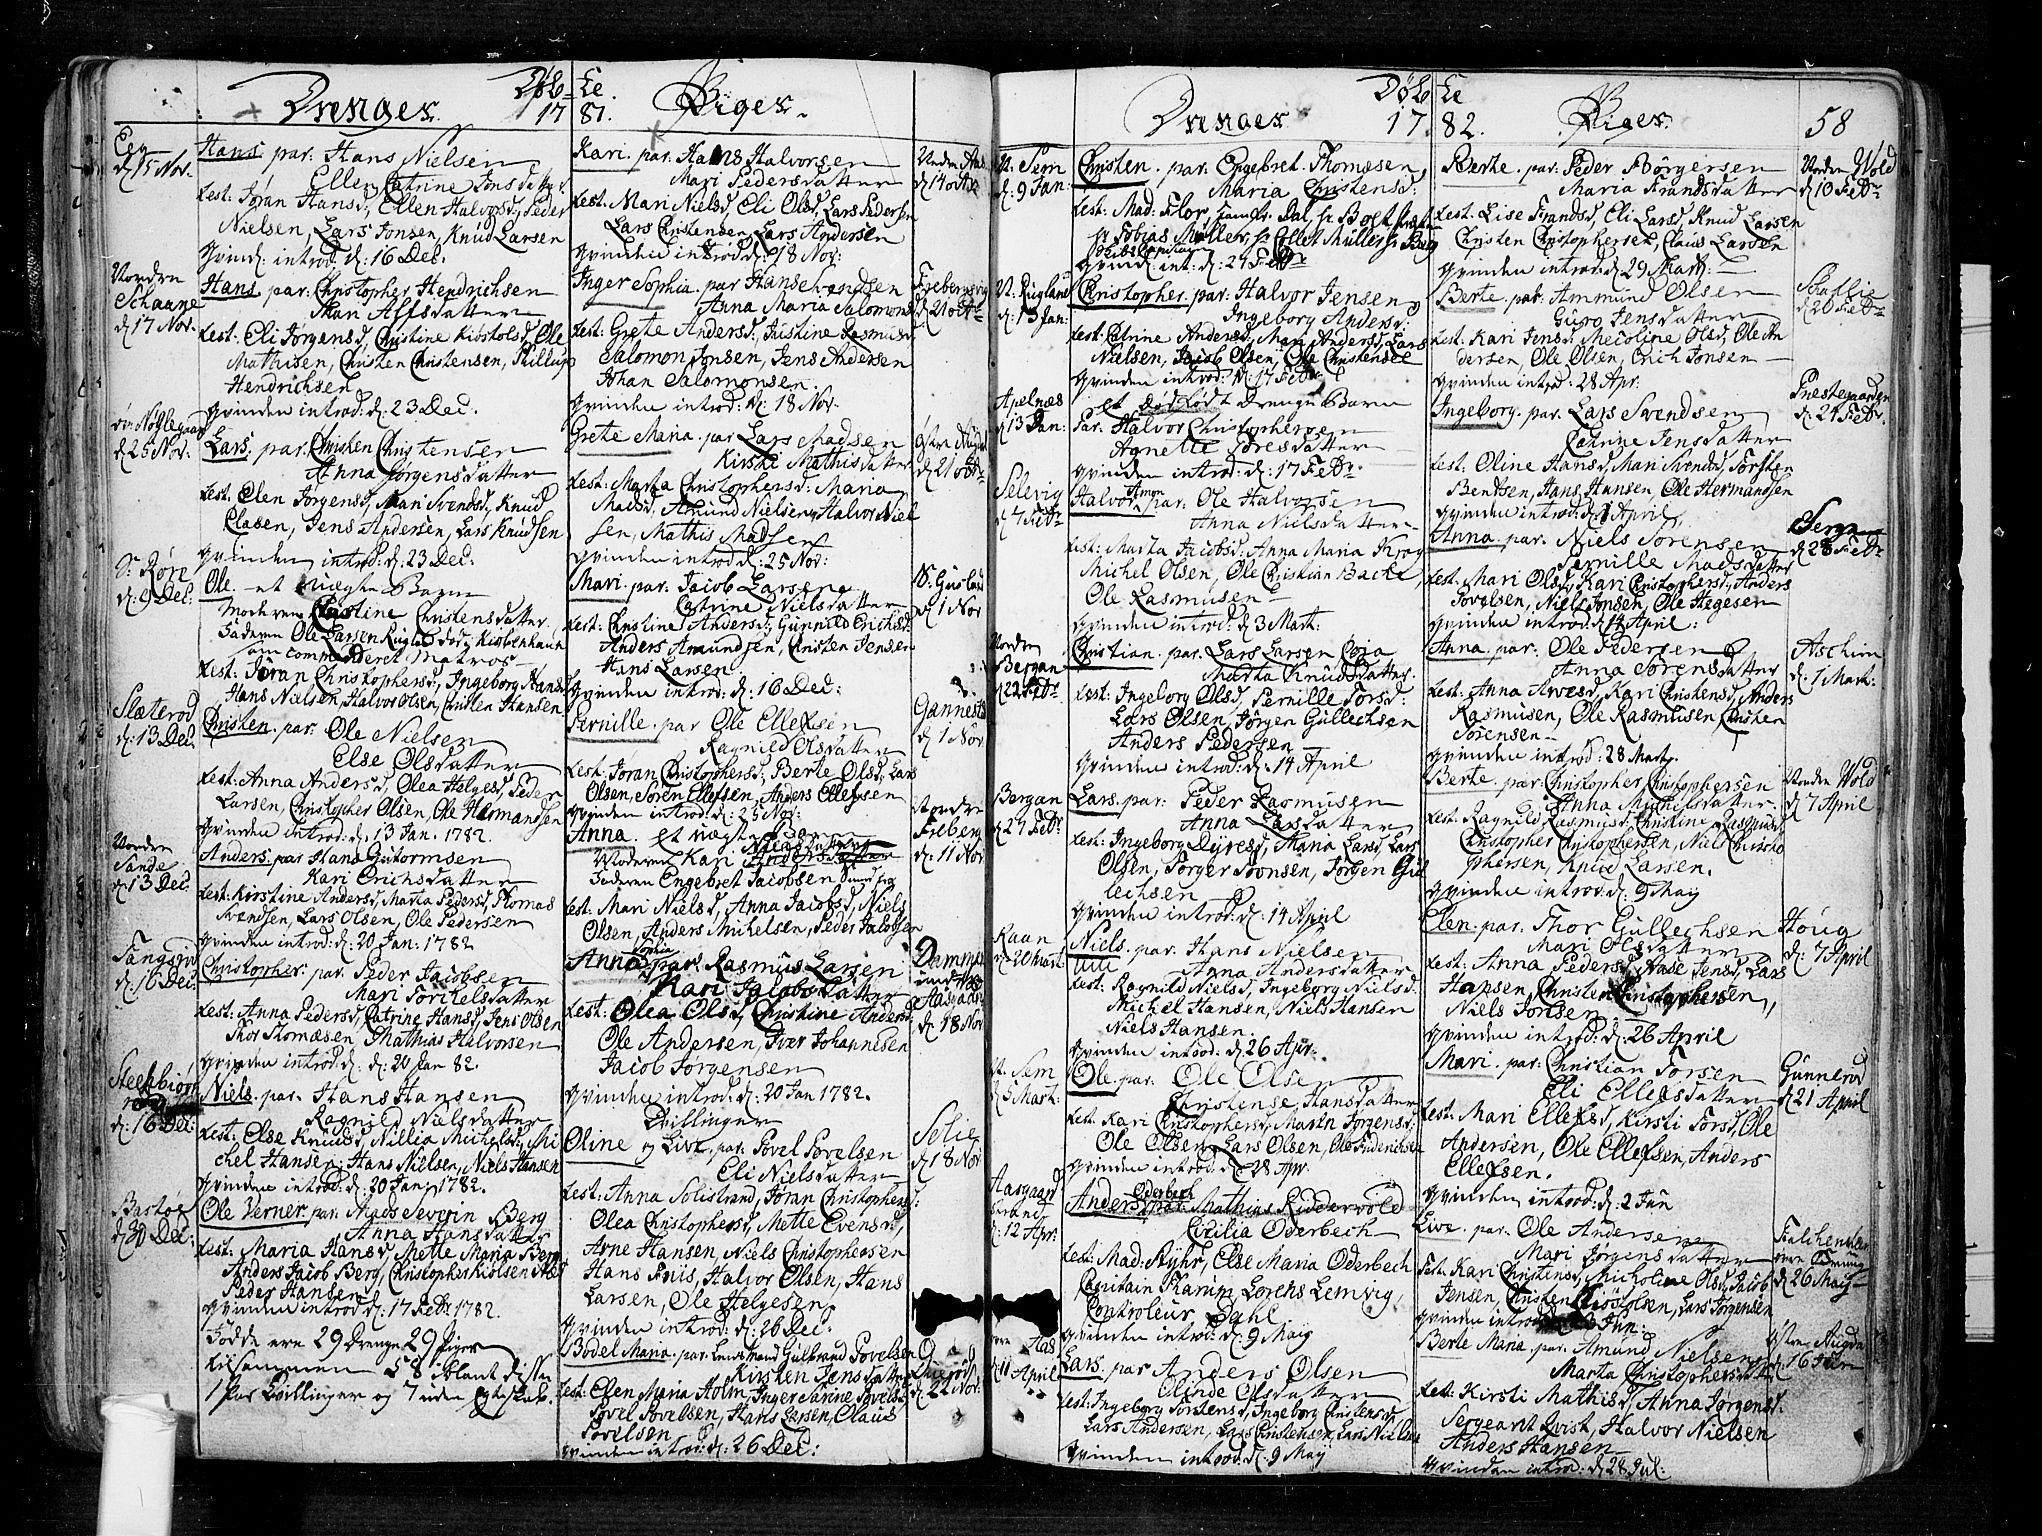 Drenges Døbte 1781. Piger
Een
d: 15 Nov.
Hans. par: Hans Nielsen
Ellen Catrine Jensdatter
test: Jøran Hansd, Ellen Halvorsd, Peder
Nielsen, Lars Jonsen, Knud Larsen
Qvind: introd: d: 16 Dec:
Norden
Schaane
d: 17 Nov.
Hans. par: Christopher Hendrichsen
Mari Alfsdatter
test: Eli Jørgensd, Christine Kiøstolsd, Ole
Mathisen, Christen Christensen, Phillip
Hendrichsen
Qvinden introd: d: 23 Dec.
d: 25 Nov:
Lars. par: Christen Christensen
Anna Jørgensdatter
test: Elen Jørgensd, Mari Svendsd, Knud
Clasen, Jens Andersen, Lars Knudsen
Qvinden introd: d: 23 Dec:
d: 9 Dec:
Ole et uægte Barn
Moderen Christine Christensdatter
Faderen Ole Larsen
commanderet Matros
test: Jøran Christophersd, Ingeborg Hansd
Hans Nielsen, Halvor Olsen, Christen Hansen
Slæterød
d: 13 Dec.
Christen. par: Ole Nielsen
Else Olsdatter
test: Anna Andersd, Olea Helgesd, Peder
Larsen, Christopher Olsen, Ole Hermandsen
Qvinden introd: d: 13 Jan. 1782.
Norden
Sande
d: 13 Dec.
Anders. par Hans Guttormsen
Kari Erichsdatter
test: Kirstine Andersd, Marta Pedersd, Thomas
Svendsen, Lars Olsen, Ole Pedersen
Qvinden introd: d: 20 Jan: 1782.
d: 16 Dec:
Christopher. par: Peder Jacobsen
Mari Torkelsdatter
test: Anna Pedersd, Catrine Hansd, Jens Olsen
Thor Thomæsen, Mathias Halvorsen
Qvinden introd: d: 20 Jan 82.
d: 16 Dec:
Niels. par. Hans Hansen
Ragnild Nielsdatter
test: Else Knudsd, Nillia Michelsd, Mi
chel Hansen, Hans Nielsen, Niels Hansen
Qvinden introd: d: 20 Jan: 1782.
Bastøe
d: 30 Dec:
Ole Verner. par: Mads Severin Berg
Anna Hansdatter
test: Maria Hansd, Mette Maria Berg
Anders Jacob Berg, Christopher
Peder Hansen
Qvinden introd: d: 17 Febr 1782.
Födde ere 29 Drenge 29 Piger
tilsammen 58 iblant disse
1 Par Tvillinger og 7 uden Egteskab.
Kari. par: Hans Halvorsen
Mari Pedersdatter
test: Mari Nielsd, Eli Olsd, Lars Pedersen
Lars Christensen, Lars Andersen
Qvinden introd: d: 18 Nov:
Norden Aas
d: 14 Oct
Inger Sophia. par Hans
Anna Maria Salomonsd
test: Grete Andersd, Justine Rasmusd,
Salomon Jonsen, Jens Andersen
Johan Salomonsen.
Qvinden introd: d: 18 Nov.
d: 21 Octr
Grete Maria. par Lars Madsen
Kirsti Mathisdatter
test: Marta Christophersd: Maria
Madsd, Amund Nielsen, Halvor Niel
sen, Mathis Madsen
Qvinden introd: d: 25 Nov:
d: 21 Octr
Mari. par: Jacob Larsen
Catrine Nielsdatter
test: Christine Andersd: Gunnild Erichsd:
Anders Amundsen, Christen Jensen
Hans Larsen.
Qvinden introd: d: 16 Dec:
d: 1 Nov
Pernille. par Ole Ellefsen
Ragnild Olsdatter
test: Joran Christophersd: Berte Olsd, Lars
Olsen, Søren Ellefsen, Anders Ellefsen
Qvinden introd: d: 25 Nov:
Gannestad
d: 1 Nov
Anna. et uægte Barn
Moderen Kari Nielsdatter
Faderen Engebret Jacobsen
test: Mari Nielsd, Anna Jacobsd, Niels
Olsen, Anders Michelsen, Peder Jacobsen
Norden
Freberg
d: 11 Nov
Anna Sophia par. Rasmus Larsen
Kari Jacobsdatter
test: Olea Olsd, Christine Andersd:
Ole Andersen, Iver Johannesen
Jacob Jørgensen
Qvinden introd: d: 20 Jan 1782.
d: 18 Nov
Tvillinger
Oline og Live. par: Povel Povelsen
Eli Nielsdatter
test: Anna Solistrand, Jøran Christophersd:
Olea Christophersd, Mette Evensd,
Arne Hansen, Niels Christophersen
Hans Friis, Halvor Olsen, Hans
Larsen, Ole Helgesen
Qvinden introd: d: 26 Dec:
Solie
d: 18 Nov
Bodel Maria. par: Gulbrand Povelsen
Kirsten Jensdatter
test: Elen Maria Holm, Inger Sørine Povelsd
Povel Povelsen, Hans Larsen, Claus
Povelsen
Qvinden introd: d: 26 Dec:
d: 22 Nov:
Drenges Døbte 1782. Piger. 58
N. Sem
d: 9 Jan:
Christen. par: Engebret Thomæsen
Maria Christensd:
test: Mad: Flor, Jomfr. Dal, hr Boet
hr Tobias Müller, hr Collet Müller, hr Berg
Qvind: int: d: 24 Febr
d: 13 Jan:
Christopher. par: Halvor Jensen
Ingeborg Andersd:
test: Catrine Andersd, Mari Andersd, Lars
Nielsen, Jacob Olsen, Ole Christensen
Qvinden introd: d: 17 Febr
Apelnæs
d: 13 Jan:
et dødfødt Drenge Barn
Par. Halvor Christophersen
Agnette Toresdatter
Qvinden introd: d: 17 Febr.
Selevig
d: 7 Febr
Halvor Amon par: Ole Halvorsen
Anna Nielsdatter
test: Marta Jacobsd: Anna Maria Krog
Michel Olsen, Ole Christian Backe,
Ole Rasmusen
Qvinden introd: d: 3 Mart:
Norden
Bergan
d: 22 Febr
Christian. par: Lars Larsen
Marta Knudsdatter.
test: Ingeborg Olsd, Pernille Torsd:
Lars Olsen, Jørgen Gullechsen
Anders Pedersen
Qvinden introd: d: 14 April
Bergan
d: 27 Febr
Lars. par: Peder Rasmusen
Anna Larsdatter
test: Ingeborg Dyresd, Maria Larsd, Lars
Olsen, Torger Tronsen, Jørgen Gul
lechsen
Qvinden introd: d: 14 April
Raan
d: 20 Mart
Niels. par: Hans Nielsen
Anna Andersdatter
test: Ragnild Nielsd, Ingeborg Nielsd:
Michel Hansen, Niels Hansen
Niels Hansen.
Qvinden introd: d: 26 Apr:
N. Sem
d: 5 Mart:
Ole. par: Ole Olsen
Christense Hansdatter
test: Kari Christophersd, Martn Jørgensd:
Ole Olsen, Lars Olsen, Ole Friderichsen
Qvinden introd: d: 28 Apr.
Aasgaard
strand
d: 12 Apr:
Anders Oderbech par: Mathias Riddervold
Cicilia Oderbech
test: Mad: Kyhr, Else Maria Oderbech
Capitain Tharum, Lorchs Lemvig,
Controleur Dahl
Qvinden introd: d: 9 Maij
Aas
d: 11 April
Lars. par Anders Olsen
Elinde Olsdatter
test: Ingeborg Torstensd, Ingeborg Christensd
Lars Andersen, Lars Christensen, Lars Nielsen
Qvinden introd: d: 9 Maij
Berte. par: Peder Børgersen
Maria Frandsdatter
test: Lise Frandsd, Eli Larsd, Knud Larsen
Christen Christophersen, Claus Larsen
Qvinden introd: d: 29 Mart:
Norden Wold
d: 10 Febr
Berte. par: Ammund Olsen
Guro Jensdatter
test: Kari Jensd: Nicoline Olsd, Ole An
dersen, Ole Olsen, Erich Jonsen
Qvinden introd: 28 Apr:
d: 20 Febr
Ingeborg. par. Lars Svendsen
Catrine Jensdatter
test: Oline Hansd, Mari Svendsd, Torsten
Bentsen, Hans Hansen, Ole Hermandsen
Qvinden introd: d: 1 April
Prestegaarden
d: 24 Febr.
Anna. par. Niels Sørensen
Pernille Madsdatter
test: Mari Olsd, Kari Christophersd, Anders
Povelsen, Niels Jonsen, Ole Hegesen
Qvinden introd: d: 14 April:
d: 28 Febr
Anna. par: Ole Pedersen
Anna Sørensdatter
test: Anna Arvesd, Kari Christensd, Anders
Rasmusen, Ole Rasmusen, Christen
Sørensen
Qvinden introd: 28 Mart:
Aschim
d: 1 Mart:
Berte. par Christopher Christophersen
Anna Michelsdatter
test: Ragnild Rasmusd, Christine Rasmusd
Christopher Christophersen, Niels Christo
phersen, Knud Larsen.
Qvinden introd: d: 9 Maij
Norden Wold
d: 7 April
Elen. par. Thor Gullechsen
Mari Olsdatter
test: Anna Pedersd, Aase Jensd, Lars
Hansen, Christen Christophersen,
Niels Jonsen
Qvinden introd: d: 26 April
Houg
d: 7 April
Mari. par: Christian Torsen
Eli Ellefsdatter
test: Mari Ellefsd, Kirsti Torsd, Ole
Andersen, Ole Ellefsen, Anders
Ellefsen.
Qvinden introd: d: 2 Jun
Gunnerød
d: 21 April
Live. par: Ole Andersen
Mari Jørgensdatter
test: Kari Christensd, Micholine Olsd, Jacob
Jensen, Christen Kiøstolsen, Lars Jørgensen
Qvinden introd: Jun:
d: 26 Maij
Berte Marie. par: Amund Nielsen
Marta Christophersdatter
test: Kirsti Mathisd, Anna Jørgensd.
Sergeant Qvist, Halvor Nielsen
Anders Hansen
Qvinden introd: d: 28 Jul: